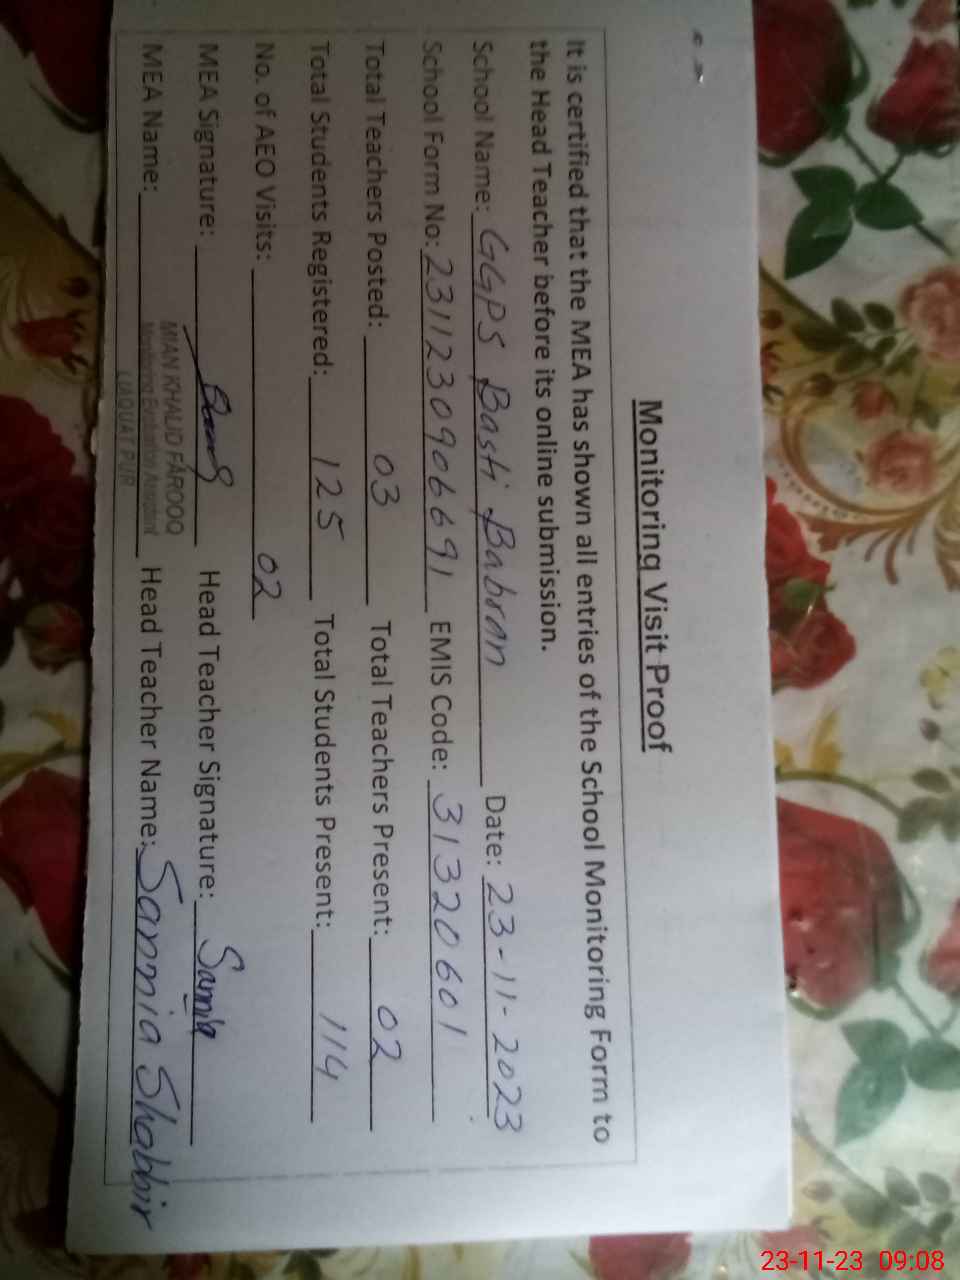 Monitoring Visit Proof
It is certified that the MEA has shown all entries of the School Monitoring Form to
the Head Teacher before its online submission.
School Name: GGPS Basti Babran Date: 23-11-2023
School Form No: 2311230906691 EMIS Code: 31320601
Total Teachers Posted: 03 Total Teachers Present: 02
Total Students Registered: 125 Total Students Present: 114
No. of AEO Visits: 02
MEA Signature: Head Teacher Signature: Samia
MIAN KHALID FAROOQ
MEA Name: Monitoring Evaluation Assistant Head Teacher Name: Samia Shabbir
LIAQUAT PUR
23-11-23 09:08